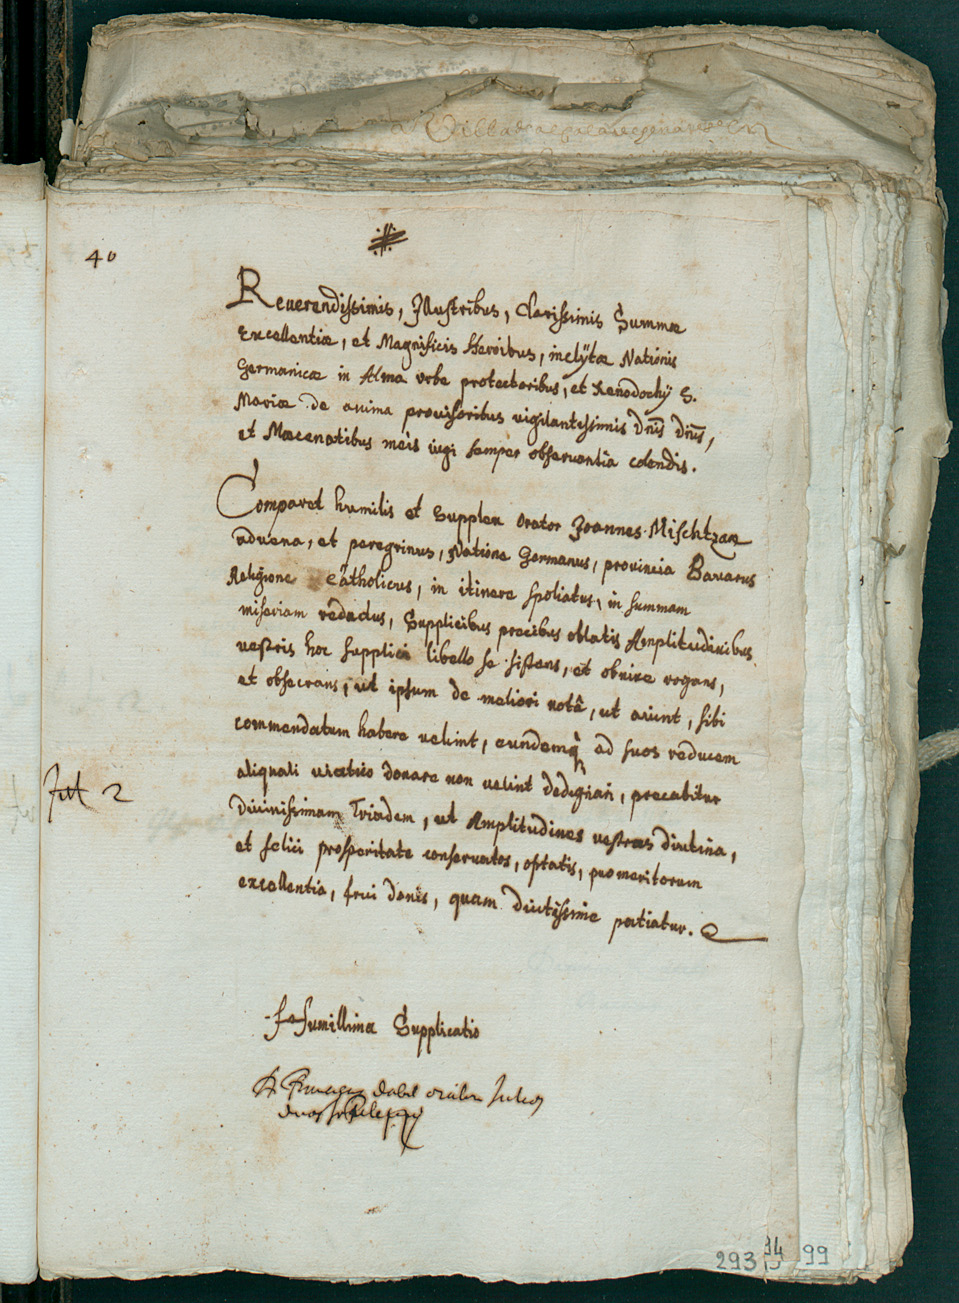 40
Reuerendissimis, Illustribus, Clarissimis Summæ
Excellentiæ, et Magnificis Heroibus, inclÿtæ Nationis
Germanicæ in Alma vrbe protectoribus, et Xenodochÿ S.
Mariæ de anima prouisoribus vigilantissimis Dn̄is Dn̄is,
et Mæcenatibus meis iugi semper obseruantia colendis.
Comparet humilis et Supplex Orator Joannes Mischtzan
aduena, et peregrinus, Natione Germanus, prouincia Bauarus
Religione Catholicus, in itinere spoliatus, in summam
miseriam redactus, Supplicibus precibus oblatis Amplitudinibus
vestris hoc supplici libello se sistens, et obnixe rogans,
et obsecrans, ut ipsum de meliori notâ, ut aiunt, sibi
commendatum habere uelint, eundemq̀ ad suos reducem
aliquali uiatico donare non uelint dedignari, precabitur
Diuinissimam Triadem, ut Amplitudines uestras diutina,
et felici prosperitate conseruatas, optatis, pro meritorum
excellentia, frui donis, quam diutissime patiatur.
Humillima Supplicatio
dabit
duos
293
14
99